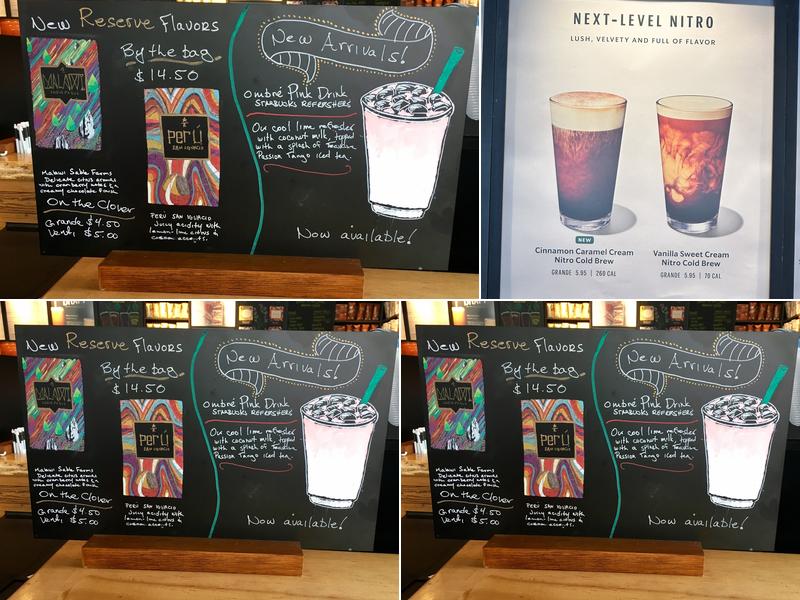 New Reserve Flavors
MALAWI
By the bag
$14.50
PERÚ
SAN IGNACIO
Malawi Sable Farms
Delicate citrus aromas
with cranberry notes in a
creamy chocolate finish.
On the Clover
Grande $4.50
Venti $5.00
PERU SAN IGNACIO
Juicy acidity with
lemon-lime citrus &
New Arrivals!
Ombré Pink Drink
STARBUCKS REFRESHERS
Our cool lime refresher
with coconut milk, topped
with a splash of Teavana
Passion Tango iced tea.
Now available!
NEXT-LEVEL NITRO
LUSH, VELVETY AND FULL OF FLAVOR
NEW
Cinnamon Caramel Cream
Nitro Cold Brew
GRANDE 5.95 | 260 CAL
Vanilla Sweet Cream
Nitro Cold Brew
GRANDE 5.95 | 70 CAL
New Reserve Flavors
MALAWI
By the bag
$14.50
PERÚ
SAN IGNACIO
Malawi Sable Farms
Delicate citrus aromas
with cranberry notes in a
creamy chocolate finish.
On the Clover
Grande $4.50
Venti $5.00
PERU SAN IGNACIO
Juicy acidity with
lemon-lime citrus &
New Arrivals!
Ombré Pink Drink
STARBUCKS REFRESHERS
Our cool lime refresher
with coconut milk, topped
with a splash of Teavana
Passion Tango iced tea.
Now available!
New Reserve Flavors
MALAWI
By the bag
$14.50
PERÚ
SAN IGNACIO
Malawi Sable Farms
Delicate citrus aromas
with cranberry notes in a
creamy chocolate finish.
On the Clover
Grande $4.50
Venti $5.00
PERU SAN IGNACIO
Juicy acidity with
lemon-lime citrus &
New Arrivals!
Ombré Pink Drink
STARBUCKS REFRESHERS
Our cool lime refresher
with coconut milk, topped
with a splash of Teavana
Passion Tango iced tea.
Now available!